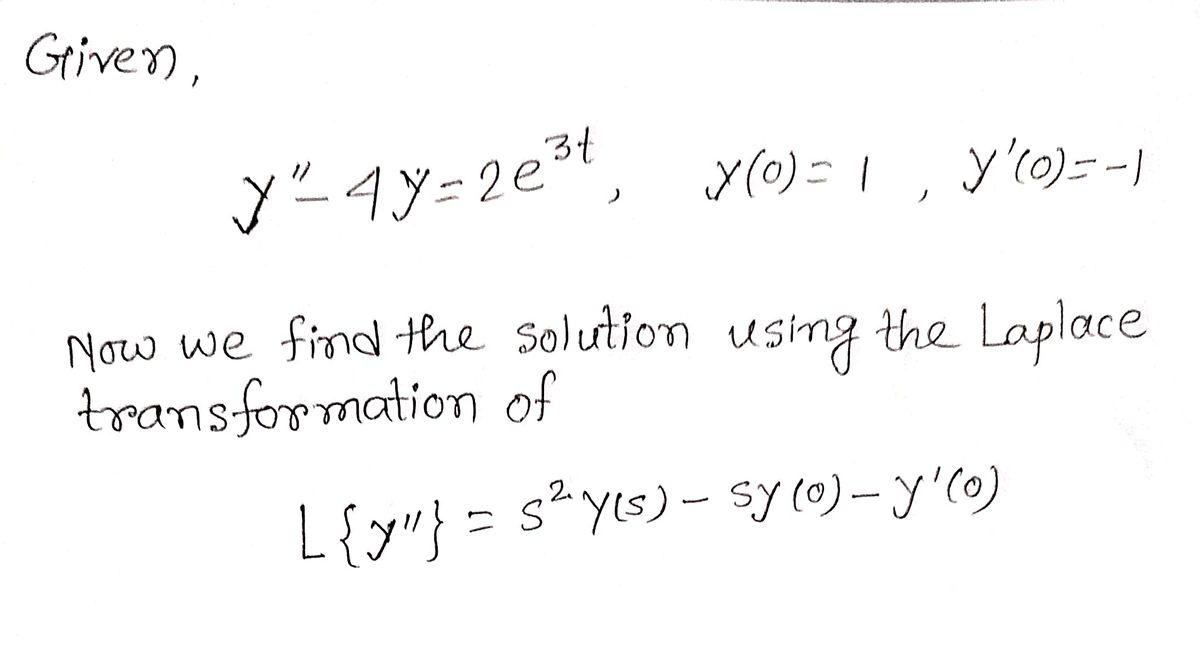 Given,
y" - 4y = 2e^{3t}, y(0) = 1, y'(0) = -1
Now we find the solution using the Laplace
transformation of
L{y"} = s²y(s) - sy(0) - y'(0)